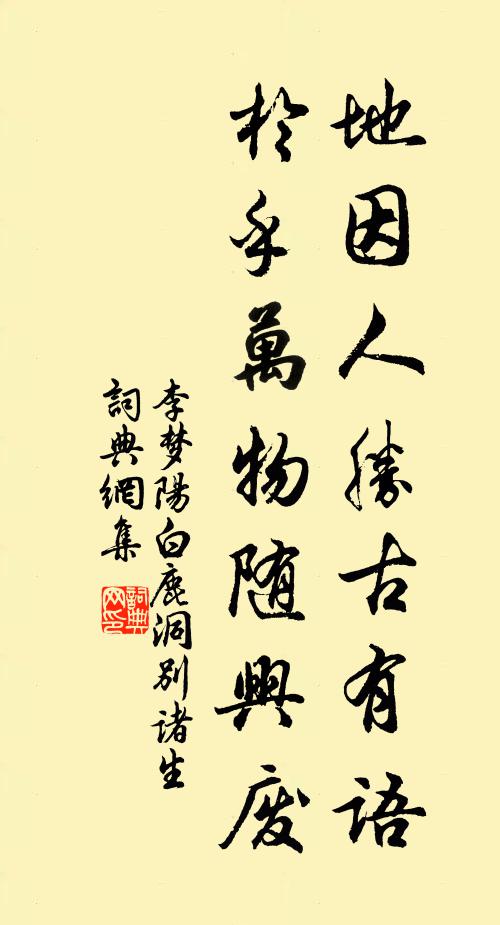 地因人勝古有語
於乎萬物随興廢
李梦陽白鹿洞別诸生
詞典網集
詞典
网印